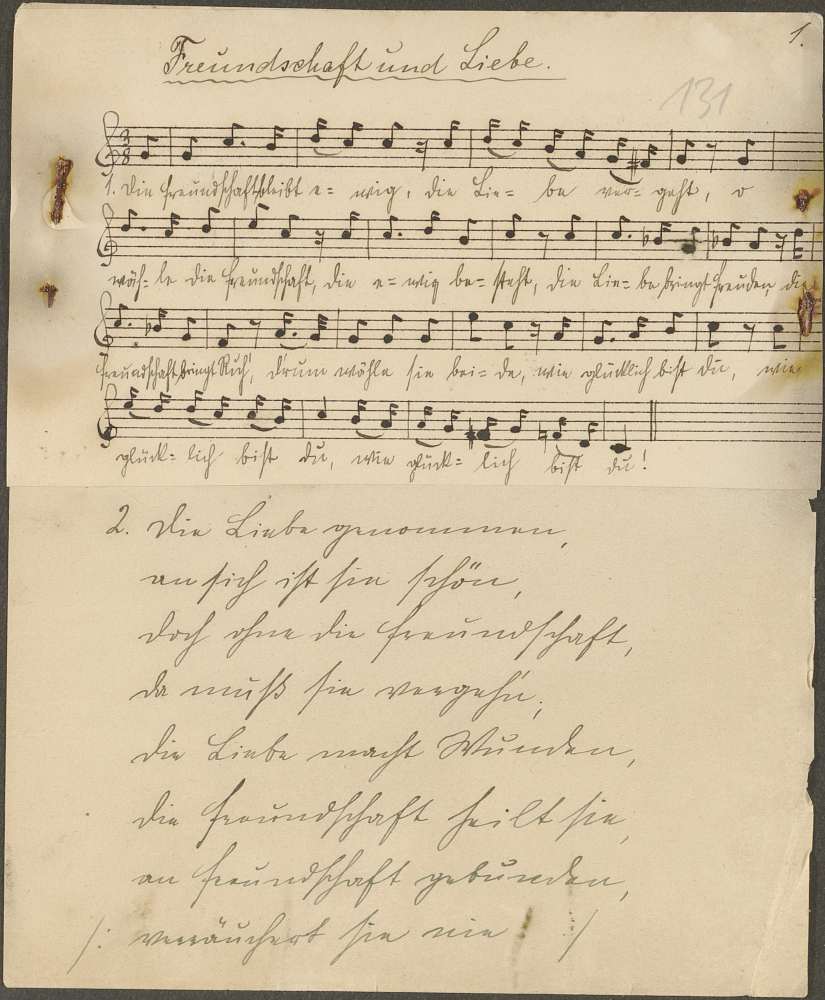 1.
Freundschaft und Liebe.
131
1. Die Freundschaft bleibt e= wig, die Lie= be ver= geht, o
wäh= le die Freundschaft, die e= wig be= steht, die Lie= be bringt Freuden, die
Freundschaft bringt Ruh', drum wähle sie bei= de, wie glücklich bist du, wie
glück= lich bist du, wie glück= lich bist du!
2. Die Liebe genommen,
an sich ist sie schön,
doch ohne die Freundschaft,
da muß sie vergehn;
die Liebe macht Wunden,
die Freundschaft heilt sie,
an Freundschaft gebunden,
/: verräuchert sie nie :/